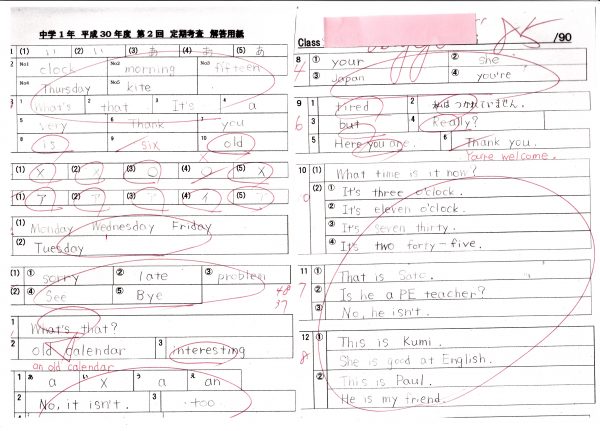 中学1年 平成30年度 第2回 定期考査 解答用紙
(1) い (2) い (3) あ (4) あ (5) あ
No1 clock No2 morning No3 fifteen
No4 Thursday No5 kite
1 What's 2 that 3 It's 4 a
5 very 6 Thank 7 you
8 is 9 six 10 old
(1) X (2) X (3) O (4) O (5) X
(1) ア (2) ア (3) (4) イ (5)
(1) Monday Wednesday Friday
(2) Tuesday
(1) ① sorry ② late ③ problem
(2) ④ See ⑤ Bye
1 What's that?
2 old calendar 3 interesting
an old calendar
1 あ a い x う a え an
2 No, it isn't. 3 too
Class /90
8 ① your ② she
4 ③ Japan ④ you're
9 1 tired 2 私はつかれていません。
6 3 but 4 Really?
5 Here you are. 6 Thank you.
You're welcome.
10 (1) What time is it non?
(2) ① It's three o'clock.
② It's eleven o'clock.
③ It's seven thirty.
④ It's two forty-five.
11 ① That is Sato.
7 ② Is he a PE teacher?
③ No, he isn't.
12 ① This is Kumi.
8 She is good at English.
② This is Paul.
He is my friend.